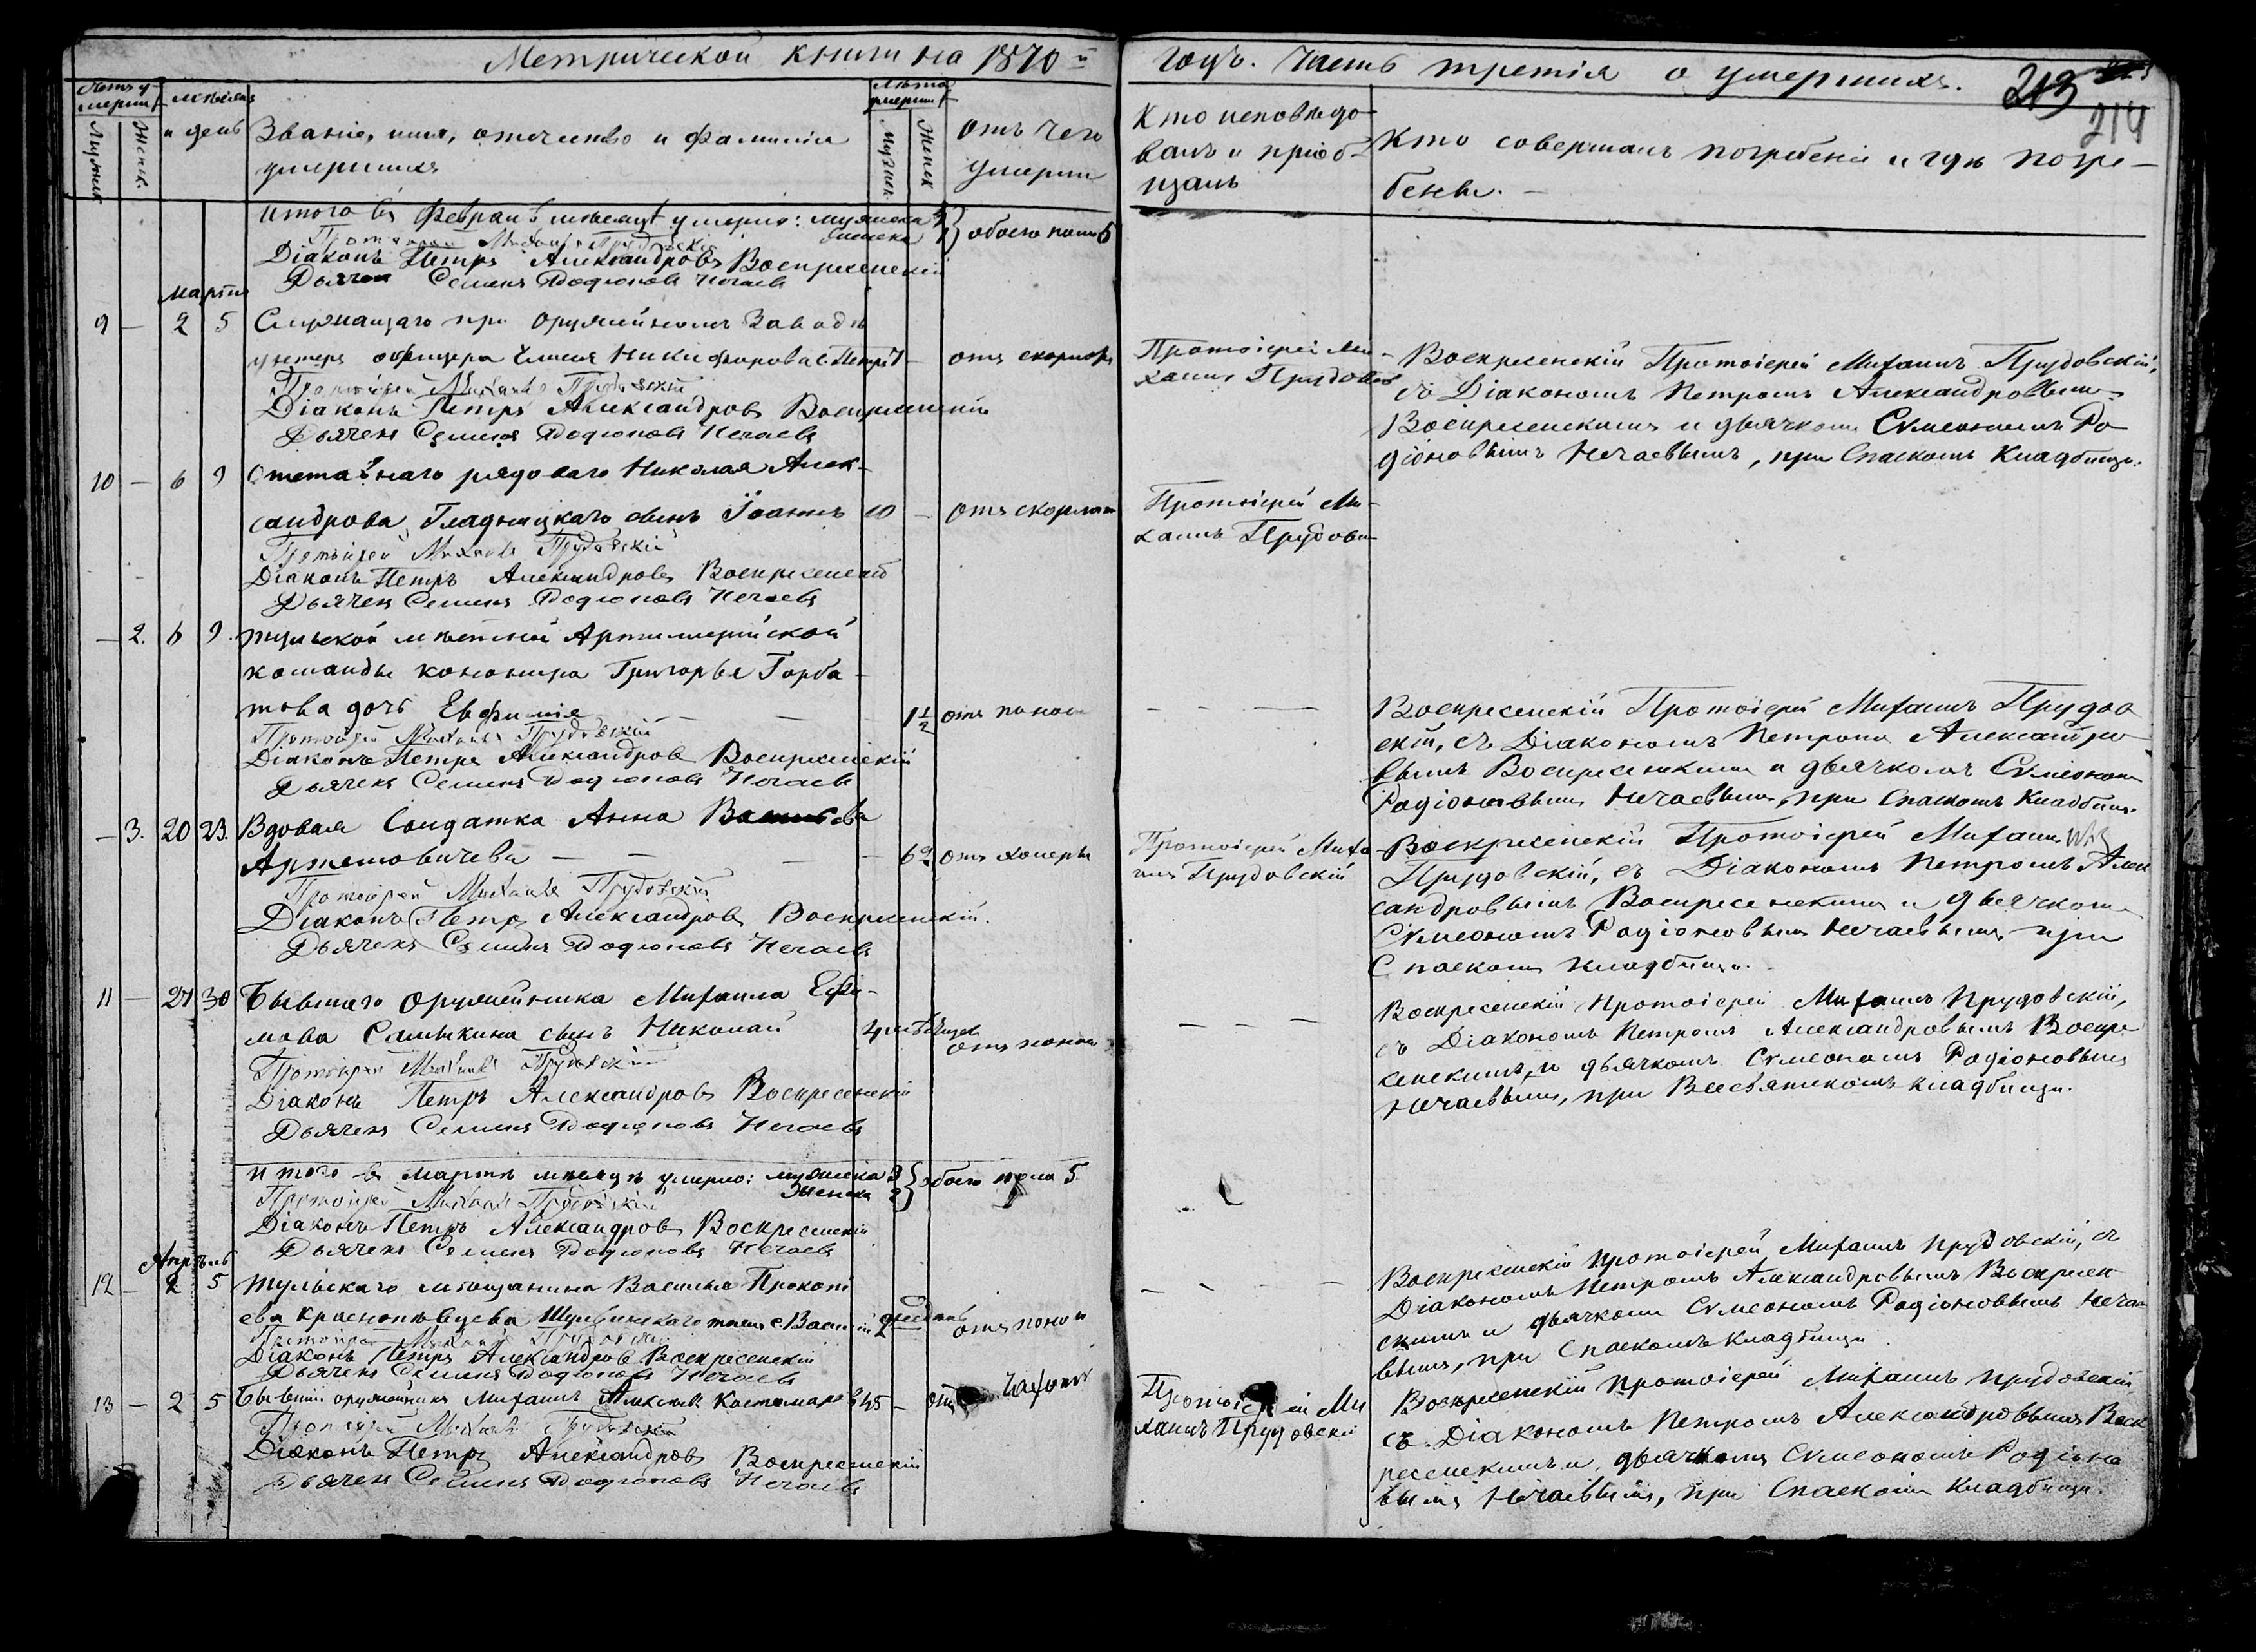 Метрической книги на 1870й
годъ. Часть третія о умершихъ. 213
214
мѣсяцъ
и день
Мужеск. Женск.
Званіе, имя, отчество и фамилія
умершихъ
Лѣта
Мужеск. Женск
отъ чего
умерли
Кто исповѣдо-
валъ и пріоб-
щалъ
Кто совершалъ погребеніе и гдѣ погре-
бены.
итого въ февралѣ мѣсяцѣ умерло: мужеска
женска обоего пола
Протоіерей Михаилъ Прудовскій
Діаконъ Петръ Александровъ Воскресенскій
Дьячекъ Семенъ Родіоновъ Нечаевъ
марта
9 — 2 5 Служащаго при оружейномъ Заводѣ
унтеръ офицера Никифорова с. Петръ
Протоіерей Михаилъ Прудовскій
Діаконъ Петръ Александровъ Воскресенскій
Дьячекъ Семенъ Родіоновъ Нечаевъ
Протоіерей Ми-
хаилъ
Воскресенскій Протоіерей Михаилъ Прудовскій,
съ Діакономъ Петромъ Александровымъ
Воскресенскимъ и дьячкомъ Сѵмеономъ Ро-
діоновымъ Нечаевымъ, при Спаскомъ Кладбищѣ.
10 — 6 9 Отставнаго рядоваго Николая Алек-
сандрова сынъ Іоаннъ 10 —
Протоіерей Михаилъ Прудовскій
Діаконъ Петръ Александровъ Воскресенскій
Дьячекъ Семенъ Родіоновъ Нечаевъ
Протоіерей Ми-
хаилъ
— 2. 6 9. тульской мѣстной Артиллерійской
команды кононира Григорья Горба-
това дочь Евфимія — — 1½ отъ поноса
Протоіерей Михаилъ Прудовскій
Діаконъ Петръ Александровъ Воскресенскій
Дьячекъ Семенъ Родіоновъ Нечаевъ
— — —
Воскресенскій Протоіерей Михаилъ Прудов
скій, съ Діакономъ Петромъ Александро-
вымъ Воскресенскимъ и дьячкомъ Сѵмеономъ
Радіоновымъ Нечаевымъ, при Спаскомъ Кладбищѣ.
— 3. 20 23. Вдовая Солдатка Анна
— — — отъ холеры
Протоіерей Михаилъ Прудовскій
Діаконъ Петръ Александровъ Воскресенскій.
Дьячекъ Семенъ Родіоновъ Нечаевъ
Протоіерей Миха
илъ Прудовскій
Воскресенскій Протоіерей Михаилъ
Прудовскій, съ Діакономъ Петромъ Алек
сандровымъ Воскресенскимъ и дьячкомъ
Сѵмеономъ Радіоновымъ Нечаевымъ при
Спаскомъ кладбищѣ.
11 — 27 30 Бывшаго оружейника Михаила Ефи-
мова сынъ Николай
Протоіерей Михаилъ Прудовскій
Діаконъ Петръ Александровъ Воскресенскій
Дьячекъ Семенъ Родіоновъ Нечаевъ
— — —
Воскресенскій протоіерей Михаилъ Прудовскій,
съ Діакономъ Петромъ Александровымъ Воскре
сенскимъ, и дьячкомъ Сѵмеономъ Радіоновымъ
Нечаевымъ, при Всесвятскомъ кладбищѣ.
итого въ мартѣ мѣсяцѣ умерло: мужеска 3
женска 2 обоего пола 5.
Протоіерей Михаилъ Прудовскій
Діаконъ Петръ Александровъ Воскресенскій
Дьячекъ Семенъ Родіоновъ Нечаевъ
Апрѣль
12 — 2 5 тульскаго мѣщанина Василья Прокоп
Протоіерей Михаилъ Прудовскій
Діаконъ Петръ Александровъ Воскресенскій
Дьячекъ Семенъ Родіоновъ Нечаевъ
— — —
Воскресенскій протоіерей Михаилъ Прудовскій, съ
Діакономъ Петромъ Александровымъ Воскресен
скимъ и дьячкомъ Сѵмеономъ Радіоновымъ Неча
вымъ, при Спаскомъ кладбищѣ
13 — 2 5 Бывшій оружейникъ Михаилъ 45 —
Протоіерей Михаилъ Прудовскій
Діаконъ Петръ Александровъ Воскресенскій
Дьячекъ Семенъ Родіоновъ Нечаевъ
Протоіерей Ми
хаилъ Прудовскій
Воскресенскій протоіерей Михаилъ Прудовскій
съ Діакономъ Петромъ Александровымъ Воск
ресенскимъ и дьячкомъ Сѵмеономъ Радіоно
вымъ Нечаевымъ, при Спаскомъ Кладбищѣ.